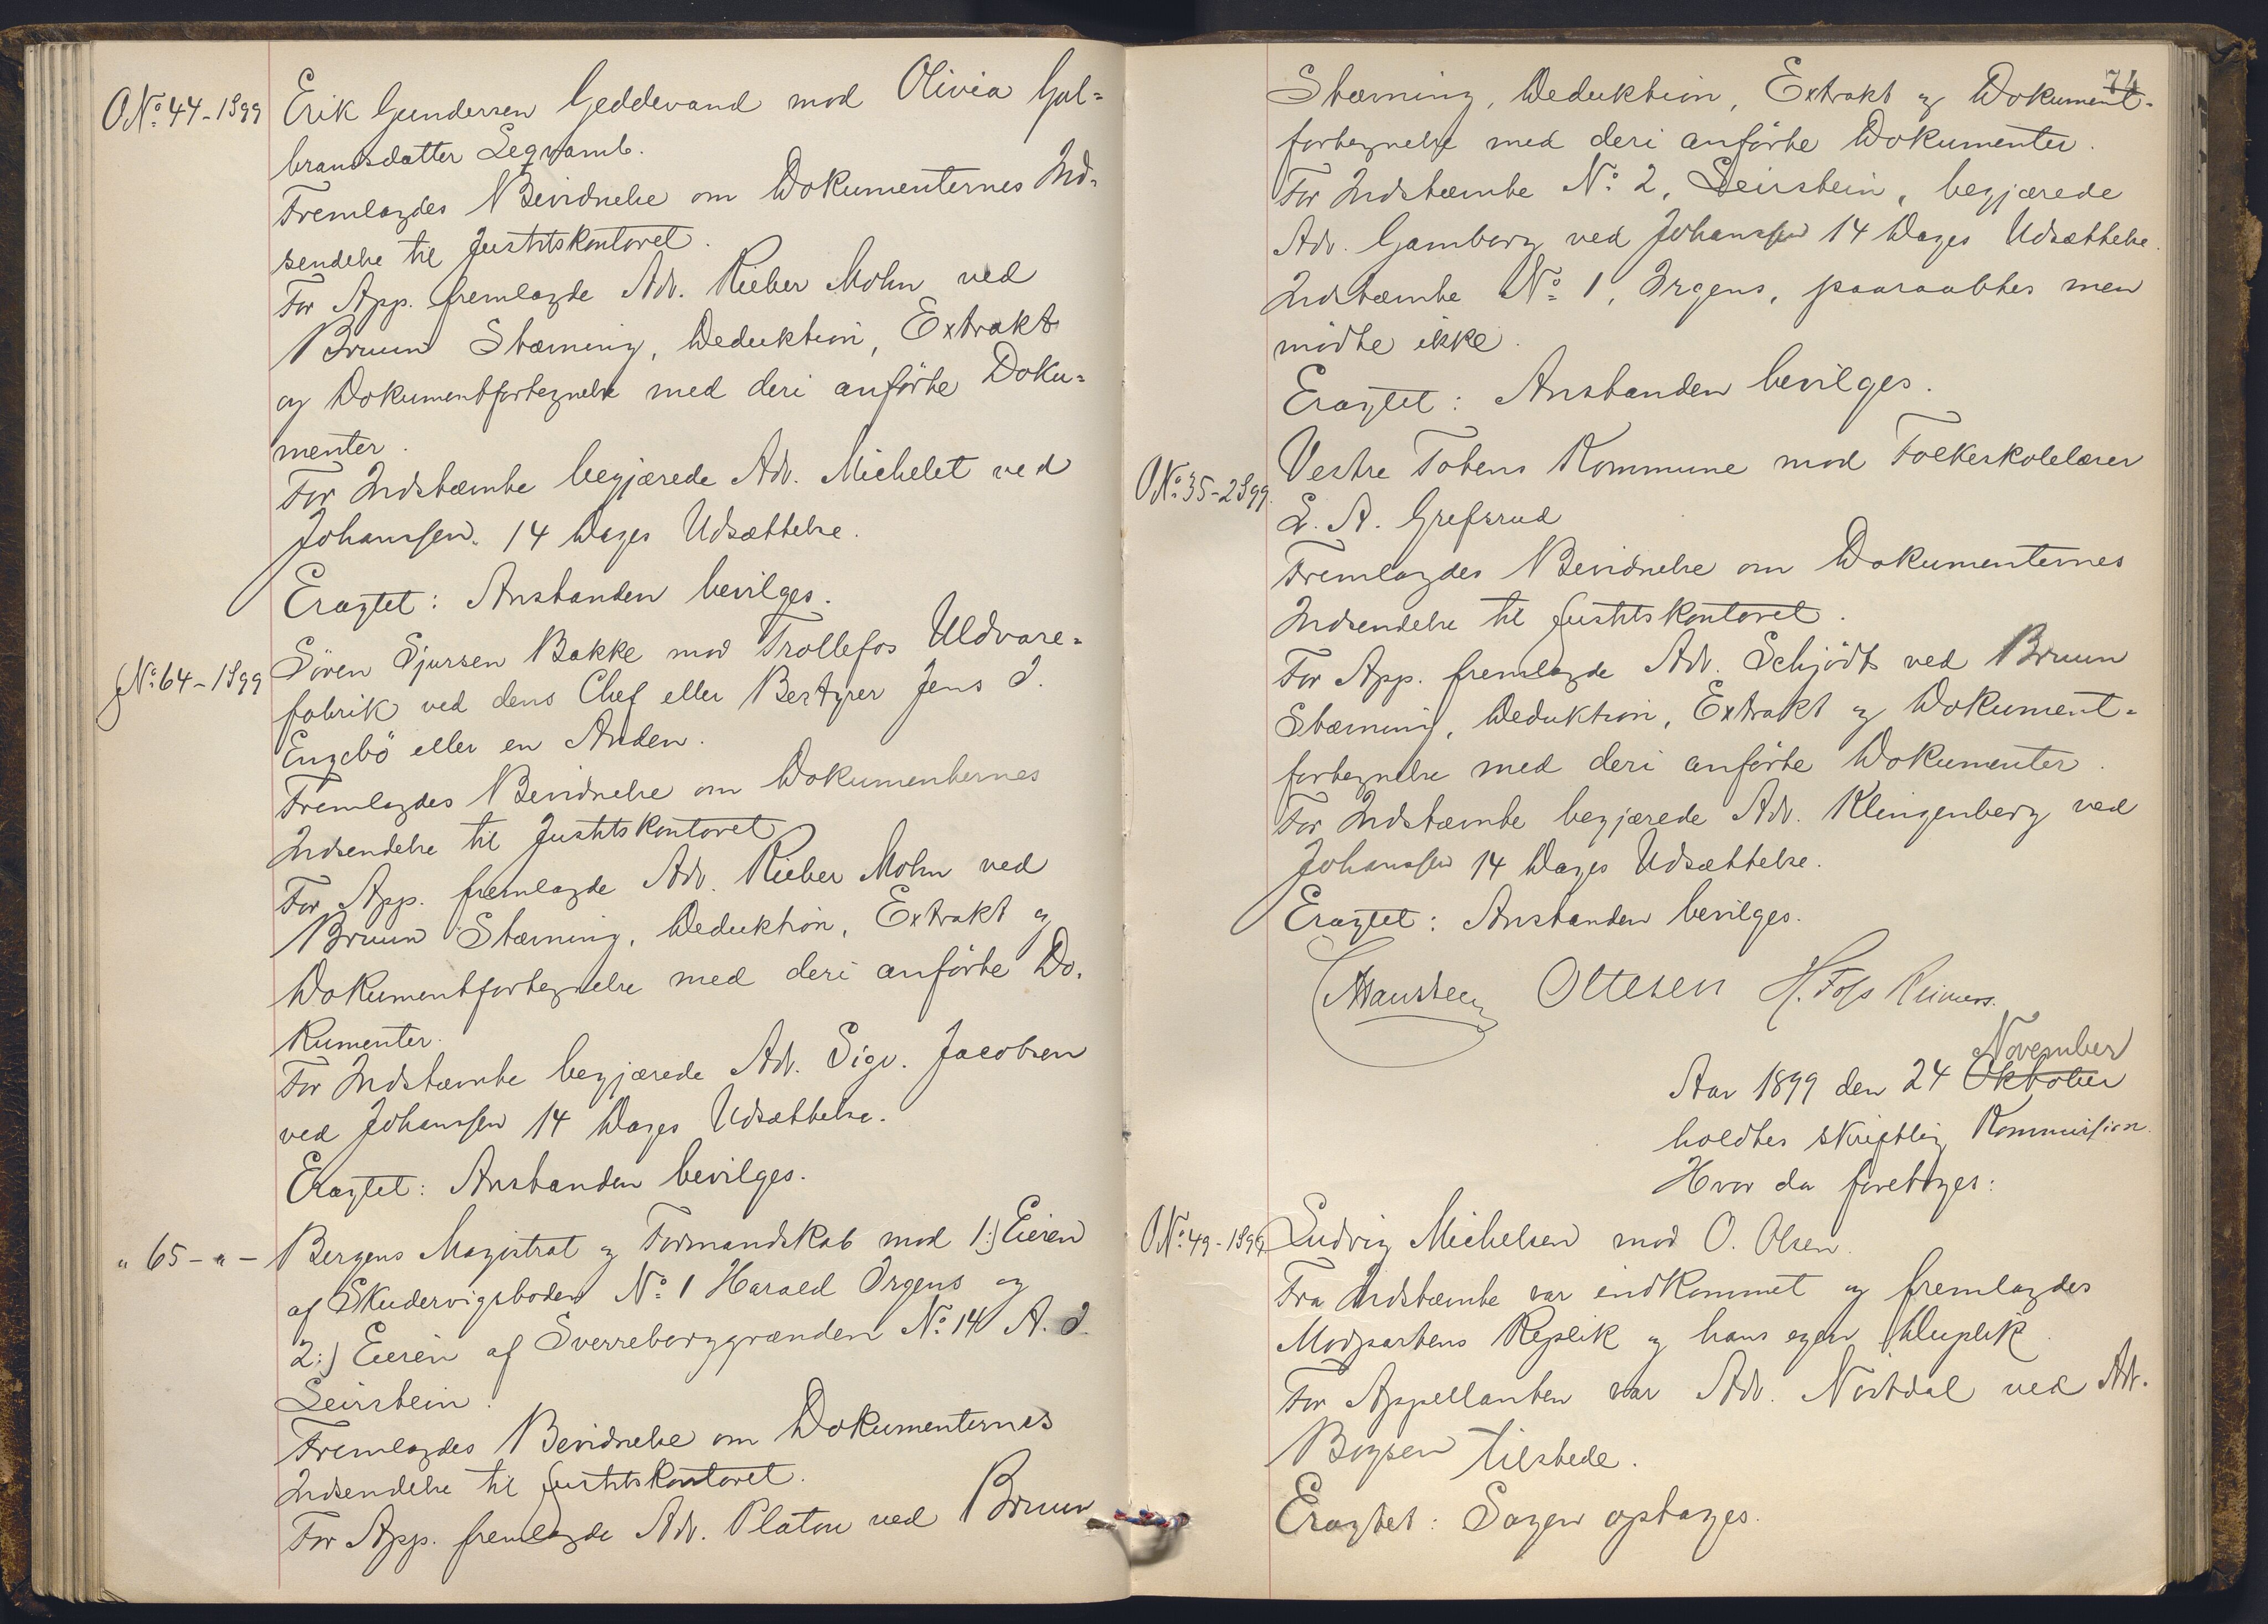 O No 44-1899 Erik Gundersen Geddevand mod Olivia Gul=
brandsdatter Legvamb.
Fremlagdes Bevidnelse om Dokumenternes Ind=
sendelse til Justitskontoret.
For App. fremlagde Adv. Rieber Mohn ved
Bruun Stævning, Deduktion, Extrakt
og Dokumentfortegnelse med deri anförte Doku=
menter.
For Indstævnte begjærede Adv. Michelet ved
Johanssen 14 Dages Udsættelse.
Eragtet: Anstanden bevilges.
No 64-1899 Sören Sjursen Bakke mod Trollefos Uldvare=
fabrik ved dens Chef eller Bestyrer Jens I.
Engebö eller en Anden.
Fremlagdes Bevidnelse om Dokumenternes
Indsendelse til Justitskontoret
For App. fremlagde Adv. Rieber Mohn ved
Bruun Stævning, Deduktion, Extrakt og
Dokumentfortegnelse med deri anförte Do=
kumenter.
For Indstævnte begjærede Adv. Sigv. Jacobsen
ved Johanssen 14 Dages Udsættelse.
Eragtet: Anstanden bevilges.
" 65 - " - Bergens Magistrat og Formandskab mod 1:) Eieren
af Skudervigsboden No 1 Harald Irgens og
2:) Eieren af Sverreborggrænden No 14 A. I.
Leirstein.
Fremlagdes Bevidnelse om Dokumenternes
Indsendelse til Justitskontoret.
For App. fremlagde Adv. Platou ved Bruun
74
Stævning, Deduktion, Extrakt og Dokument=
fortegnelse med deri anförte Dokumenter.
For Indstævnte No 2, Leirstein, begjærede
Adv. Gamborg ved Johanssen 14 Dages Udsættelse.
Indstævnte No 1, Irgens, paaraabtes men
mödte ikke.
Eragtet: Anstanden bevilges.
O No 35-2899. Vestre Totens Kommune mod Folkeskolelærer
L. A. Grefsrud
Fremlagdes Bevidnelse om Dokumenternes
Indsendelse til Justitskontoret.
For App. fremlagde Adv. Schjödt ved Bruun
Stævning, Deduktion, Extrakt og Dokument=
fortegnelse med deri anförte Dokumenter.
For Indstævnte begjærede Adv. Klingenberg ved
Johanssen 14 Dages Udsættelse.
Eragtet: Anstanden bevilges.
Ottesen H. Foss Reimers.
November
Aar 1899 den 24 Oktober
holdtes skriftlig Kommission.
Hvor da foretoges:
O No 49-1899 Ludvig Michelsen mod O. Olsen.
Fra Indstævnte var indkommet og fremlagdes
Modpartens Replik og hans egen Duplik.
For Appellanten var Adv. Nöstdal ved Adv.
Boysen tilstede.
Eragtet: Sagen optages.